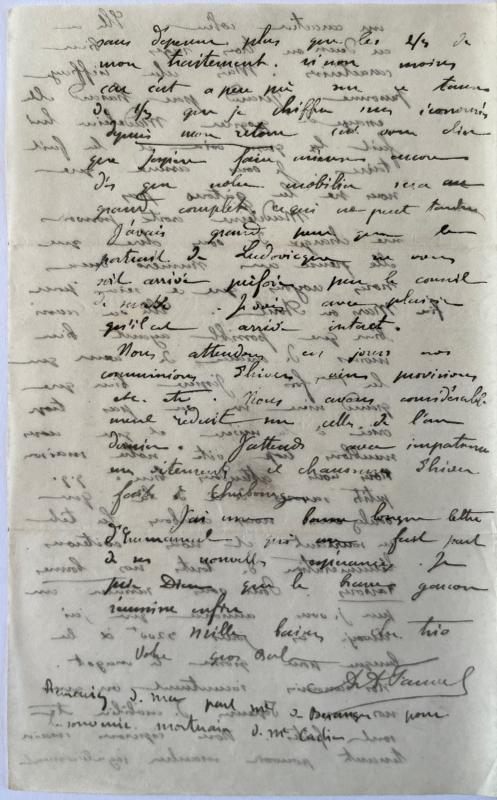 sans dépenser plus que les 2/3 de
mon traitement. si non moins
car c'est à peu près sur ce taux
de 1/3 que je chiffre mes économies
depuis mon retour c'est vous dire
que j'espère faire mieux encore
dès que notre mobilier sera au
grand complet ce qui ne peut tarder
J'avais grand peur que le
portrait de Ludovicque ne vous
soit arrivé
de . Je vois avec plaisir
qu'il est arrivé intact.
Nous attendons ces jours nos
commissions d'hiver, vins provisions
etc. etc. Nous avons considérable-
ment réduit sur celles de l'an
dernier. J'attends avec impatience
mes vêtements et chaussures d'hiver
faits à Cherbourg
J'ai une bonne longue lettre
d'Emmanuel qui me fait part
de ses nouvelles espérances. Je
prie Dieu que le brave garçon
réussisse enfin
Mille baisers trio
Votre gros
Remerciez de ma part Mme de Beranger pour
souvenir mortuaire de Mr